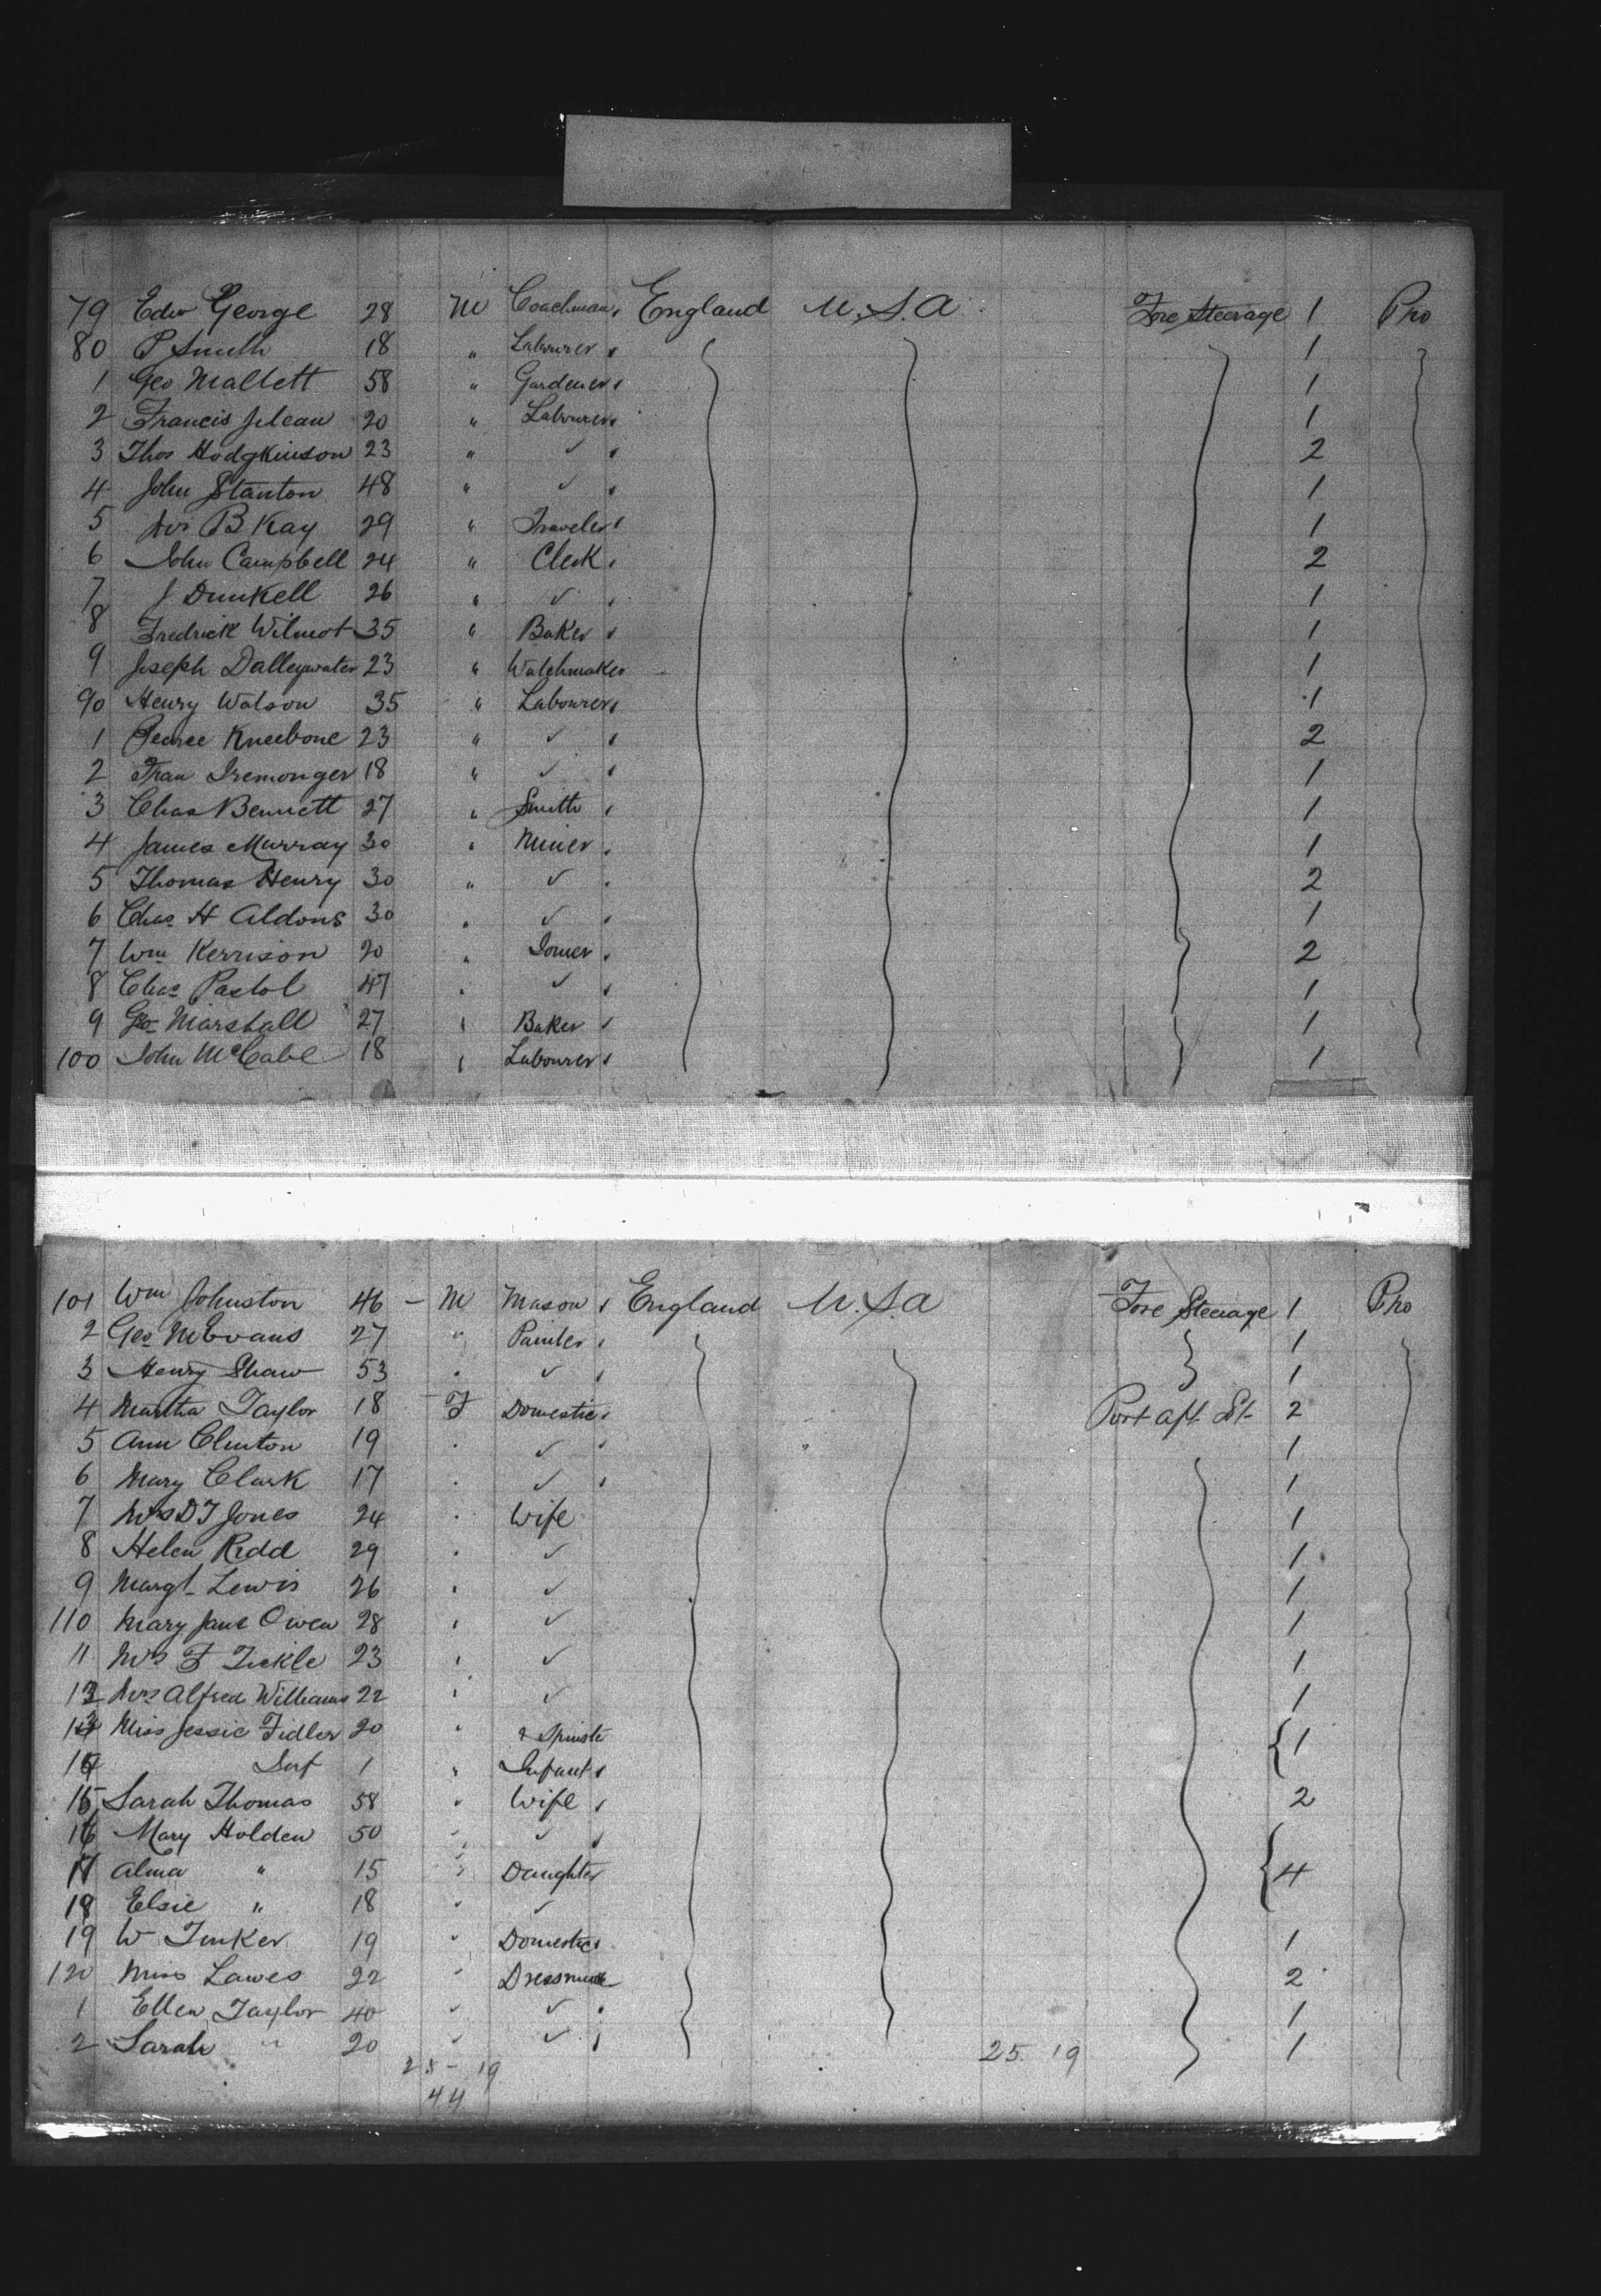 79 Edw George 28 M Coachman England U.S.A Fore Steerage 1 Pro
80 P Smith 18 " Labourer 1
1 Geo Mallett 58 " Gardener 1
2 Francis 20 " Labourer 1
3 Thos Hodgkinson 23 " ✓ 2
4 John Stanton 48 " ✓ 1
5 B Kay 29 " Traveler 1
6 John Campbell 24 " Clerk 2
7 J Dunkell 26 " ✓ 1
8 Fredrick Wilmot 35 " Baker 1
9 Joseph Dalleywater 23 " Watchmaker 1
90 Henry Watson 35 " Labourer 1
1 Pearce Kneebone 23 " ✓ 2
2 Fran Iremonger 18 " ✓ 1
3 Chas Bennett 27 " Smith 1
4 James Murray 30 " Miner 1
5 Thomas Henry 30 " ✓ 2
6 Chas H Aldons 30 " ✓ 1
7 Wm Kerrison 20 " Joiner 2
8 Chas 47 " ✓ 1
9 Geo Marshall 27 " Baker 1
100 John McCabe 18 " Labourer 1
101 Wm Johnston 46 - M Mason England U.S.A Fore Steerage 1 Pro
2 Geo M Evans 27 " Painter 1
3 Henry Shaw 53 " ✓ 1
4 Martha Taylor 18 F Domestic Port aft St 2
5 Ann Clinton 19 " ✓ 1
6 Mary Clark 17 " ✓ 1
7 Mrs D J Jones 24 " Wife 1
8 Helen Redd 29 " ✓ 1
9 Margt Lewis 26 " ✓ 1
110 Mary Jane Owen 28 " ✓ 1
11 Mrs F Tickle 23 " ✓ 1
12 Mrs Alfred Williams 22 " ✓ 1
13 Miss Jessie Fidler 20 " Spinster 1
14 Inf 1 " Infant
15 Sarah Thomas 58 " Wife 2
16 Mary Holden 50 " ✓
17 Alma " 15 " Daughter 4
18 Elsie " 18 " ✓
19 W Tinker 19 " Domestic 1
120 Miss Lawes 22 " 2
1 Ellen Taylor 40 " ✓ 1
2 Sarah " 20 " ✓ 1
25 - 19 25. 19
44